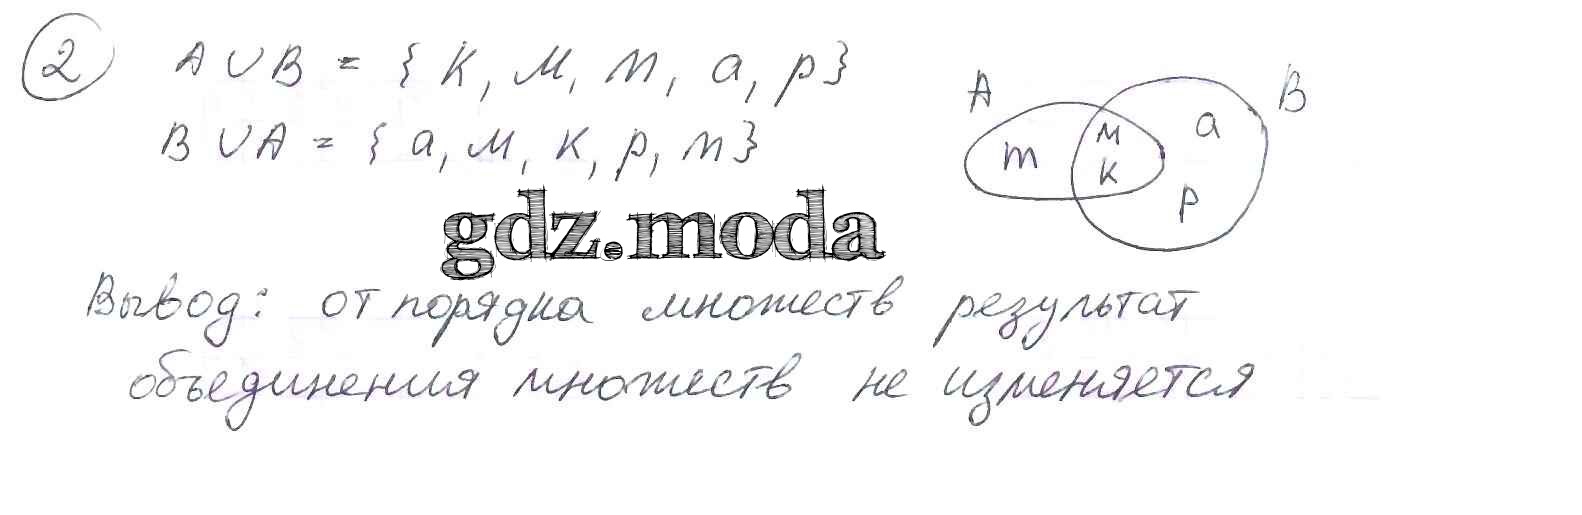 2 A ∪ B = { к, м, т, а, р}
B ∪ A = { а, м, к, р, т}
A B
м а
т к
р
gdz.moda
Вывод: от порядка множеств результат
объединения множеств не изменяется